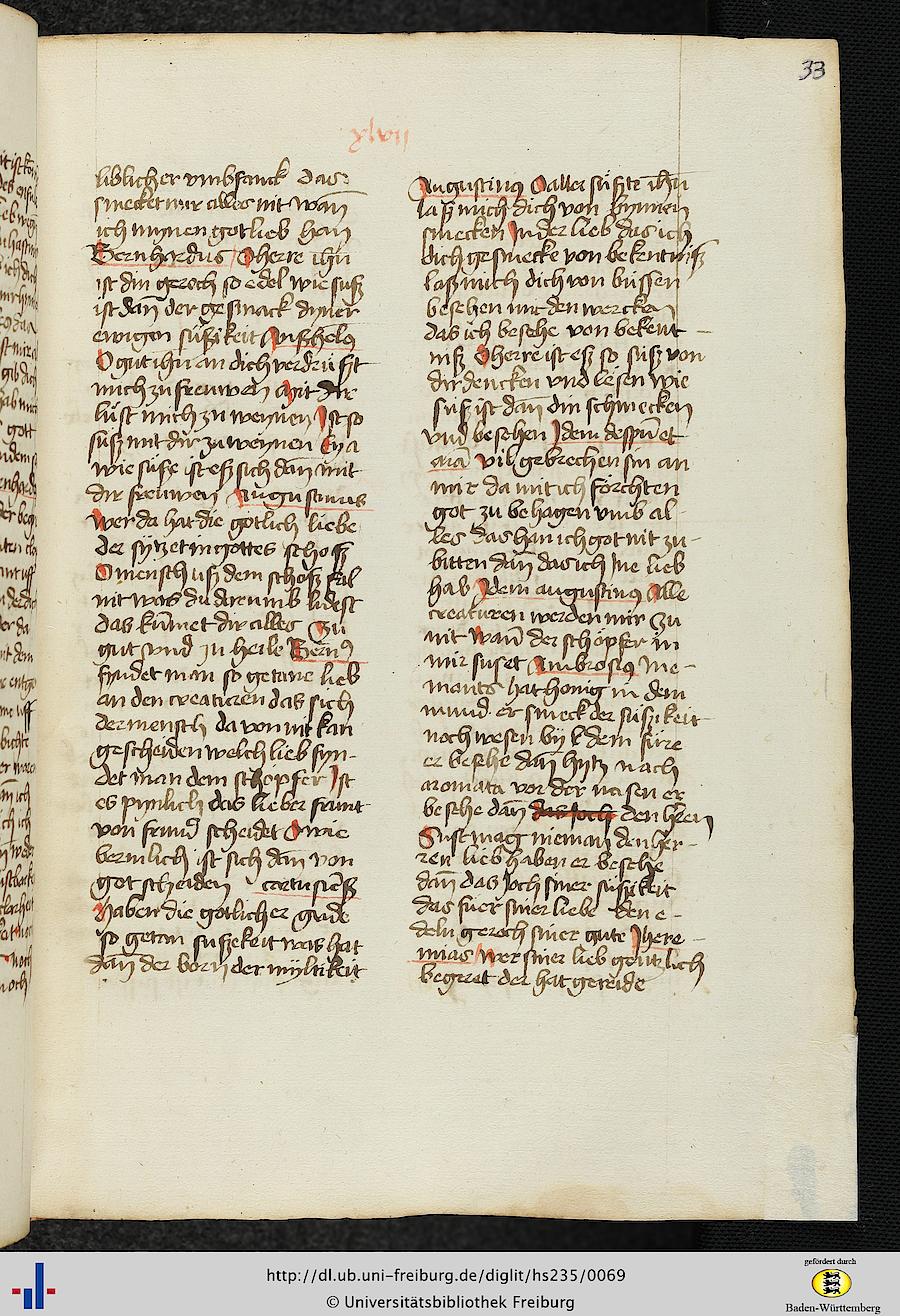 33
xlvii
liblicher vmbfanck das
smecket mir alles nit wan̄
ich mynen got lieb han
Bernhardus O herre ihū
ist din geroch so edel wie suß
ist dan̄ der gesmack dyner
ewigen sußikeit Anßhelꝯ
O gut ihū an dich verdrüßt
mich zu freuwen mit dir
lust mich zu weynen Ist so
suß mit dir zu weynen Eya
wie süße ist eß sich dan̄ mit
dir freuwen Augustinus
wer da hat die gotlich liebe
der sytzet in gottes schoß
O mensch uß dem schoß fal
nit was du darumb lidest
das kūmet dir alles zu
gut vnd zu heile Bernꝯ
fyndet man so getane lieb
an den creaturen das sich
der mensch da von nit kan
gescheiden welch lieb fyn-
det man dem schopfer Ist
es pynlich das lieber frunt
von frund scheidet O wie
bermlich ist sich dan̄ von
got scheiden cartusiēß
Haben die gotlicher gnade
so getan sußekeit was hat
dan̄ der born der myltikeit
Augustinꝯ O aller süßte ihū
laß mich dich von bynnen
smecken In der lieb das ich
dich gesmecke von bekentniß
laß mich dich von bussen
besehen mit den wercken
das ich besehe von bekent-
niß O herre ist eß so suß von
dir dencken vnd lesen wie
suß ist dan̄ din schmecken
vnd besehen Idem despū et
aīa vil gebrechen sin an
mir da mit ich forchten
got zu behagen vmb al-
les das han ich got nit zu-
bitten dan̄ das ich ine lieb
hab Idem augustinꝯ Alle
creaturen werden mir zu
nit wan̄ der schöpfer in
mir suset Ambrosiꝯ Nie-
mants hat honig in dem
mund er smeck der süßikeit
noch wesen by dem füre
er besehe dan̄ hytz nach
aromata vor der nasen er
besehe dan̄ den hrēn
Sust mag nieman den her-
ren lieb haben er besehe
dan̄ das hoch siner süßikeit
das fuer siner liebe den e-
deln geroch siner gute Ihere-
mias wer siner lieb gentzlich
begeret der hat gereide
http://dl.ub.uni-freiburg.de/diglit/hs235/0069
© Universitätsbibliothek Freiburg
gefördert durch
Baden-Württemberg